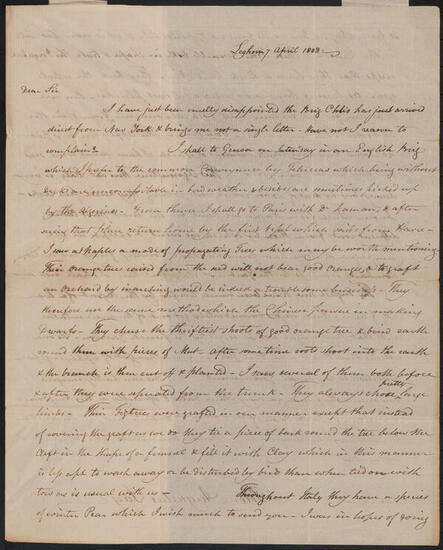 Leghorn 7 April 1803
Dear Sir
I have just been cruelly disappointed the Brig Chloris has just arrived
direct from New York & brings me not a single letter. Have not I reason to
complain? I shall to Genoa on Saturday in an English Brig
which I prefer to the common Conveyance by Feluccas which being without
decks are uncomfortable in bad weather & besides are sometimes picked up
by the Algerines - From thence I shall go to Paris with Dr and after
seeing that place return home by the first Vessel which sails from Havre -
I saw at Naples a mode of propagating trees which may be worth mentioning
Their orange trees raised from the seed will not bear good oranges, & to graft
an orchard by inarching would be indeed a troublesome business - They
therefore use the same method which the Chinese pursue in making
dwarfs - They chuse the thriftiest shoots of good orange tree & bind earth
round them with pieces of Mat - after some time roots shoot into the earth
& the branch is then cut off & planted - I saw several of them both before
& after they were separated from the trunk - They always chose pretty large
limbs - Their Figtrees were grafted in our manner except that instead
of covering the graft as we do they tie a piece of bark round the tree below the
Cleft in the shape of a funnel & fill it with Clay which in this manner
is less apt to wash away or be disturbed by birds than when tied on with
tow as is usual with us - Throughout Italy they have a species
of winter Pear which I wish much to send you - I was in hopes of going